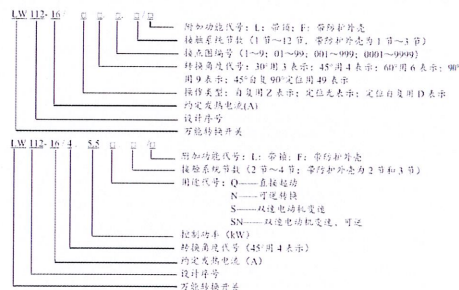 LW112-16/□.□.□/□
附加功能代号: L: 带锁; F: 带防护外壳
接触系统节数 (1节～12节, 带防护外壳为1节～3节)
接点图编号 (1～9; 01～99; 001～999; 0001～9999)
转换角度代号: 30°用3表示; 45°用4表示; 60°用6表示; 90°
用9表示; 45°自复90°定位用49表示
操作类型: 自复用Z表示; 定位无表示; 定位自复用D表示
约定发热电流(A)
设计序号
万能转换开关
LW112-16/4.5.5□□/□
附加功能代号: L: 带锁; F: 带防护外壳
接触系统节数 (2节～4节; 带防护外壳为2节和3节)
用途代号: Q——直接起动
N——可逆转换
S——双速电动机变速
SN——双速电动机变速、可逆
控制功率 (kW)
转换角度代号 (45°用4表示)
约定发热电流 (A)
设计序号
万能转换开关